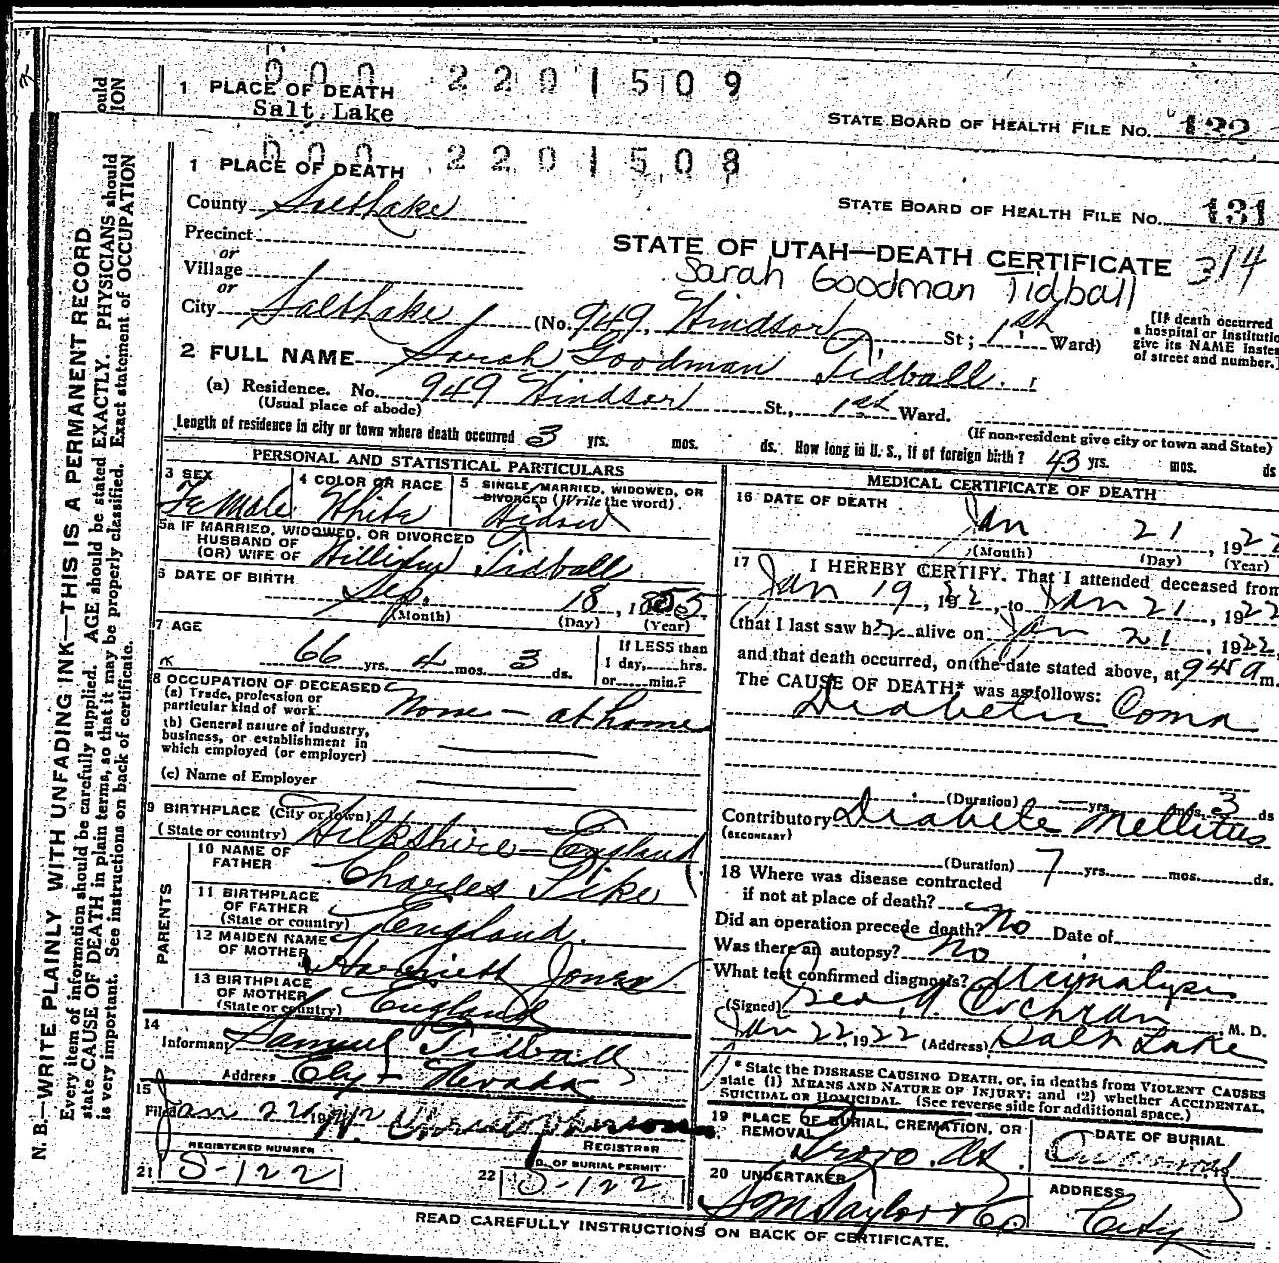 000 2201509
1 PLACE OF DEATH
Salt Lake
STATE BOARD OF HEALTH FILE No. 132
000 2201508
1 PLACE OF DEATH
STATE BOARD OF HEALTH FILE No. 131
County Salt Lake
STATE OF UTAH—DEATH CERTIFICATE 314
Precinct
or
Village
Sarah Goodman Tidball
or
City Salt Lake (No. 949 Windsor St; 1st Ward)
[If death occurred
a hospital or institutio
give its NAME instea
of street and number.]
2 FULL NAME Sarah Goodman Tidball.
(a) Residence. No. 949 Windsor St., 1st Ward.
(Usual place of abode) (If non-resident give city or town and State)
Length of residence in city or town where death occurred 3 yrs. mos. ds. How long in U. S., if of foreign birth? 43 yrs. mos. ds
PERSONAL AND STATISTICAL PARTICULARS
3 SEX
Female
4 COLOR OR RACE
White
5 SINGLE, MARRIED, WIDOWED, OR
DIVORCED (Write the word)
Widow
5a IF MARRIED, WIDOWED, OR DIVORCED
HUSBAND OF
(OR) WIFE OF William Tidball
6 DATE OF BIRTH
Sep. 18, 1855
(Month) (Day) (Year)
7 AGE
66 yrs. 4 mos. 3 ds.
If LESS than
1 day, hrs.
or min.?
8 OCCUPATION OF DECEASED
(a) Trade, profession or
particular kind of work. None — at home
(b) General nature of industry,
business, or establishment in
which employed (or employer)
(c) Name of Employer
9 BIRTHPLACE (City or town)
(State or country) Wiltshire — England
PARENTS
10 NAME OF
FATHER Charles Pike
11 BIRTHPLACE
OF FATHER
(State or country) England.
12 MAIDEN NAME
OF MOTHER Harriett Jones
13 BIRTHPLACE
OF MOTHER
(State or country) England
14
Informant Samuel Tidball
Address Ely Nevada
15
Filed Jan 22 1922
REGISTRAR
REGISTERED NUMBER
21 S-122
22 NO. OF BURIAL PERMIT
S-122
MEDICAL CERTIFICATE OF DEATH
16 DATE OF DEATH
Jan 21, 1922
(Month) (Day) (Year)
17 I HEREBY CERTIFY. That I attended deceased from
Jan 19, 1922, to Jan 21, 1922
(that I last saw her alive on Jan 21, 1922,
and that death occurred, on the date stated above, at 945 a m.
The CAUSE OF DEATH* was as follows:
Diabetic Coma
(Duration) — yrs. mos. 3 ds
Contributory Diabete Mellitus
(SECONDARY)
(Duration) 7 yrs. mos. ds.
18 Where was disease contracted
if not at place of death?
Did an operation precede death? No Date of
Was there an autopsy? No
What test confirmed diagnosis? Urynalysis
(Signed) Geo. W. Cochran M. D.
Jan 22, 1922 (Address) Salt Lake
* State the DISEASE CAUSING DEATH, or, in deaths from VIOLENT CAUSES
state (1) MEANS AND NATURE OF INJURY; and (2) whether ACCIDENTAL,
SUICIDAL OR HOMICIDAL. (See reverse side for additional space.)
19 PLACE OF BURIAL, CREMATION, OR
REMOVAL
Provo. Ut.
DATE OF BURIAL
20 UNDERTAKER
S M Taylor & Co
ADDRESS
City
READ CAREFULLY INSTRUCTIONS ON BACK OF CERTIFICATE.
N. B.—WRITE PLAINLY WITH UNFADING INK—THIS IS A PERMANENT RECORD
Every item of information should be carefully supplied. AGE should be stated EXACTLY. PHYSICIANS should
state CAUSE OF DEATH in plain terms, so that it may be properly classified. Exact statement of OCCUPATION
is very important. See instructions on back of certificate.
ould
ION